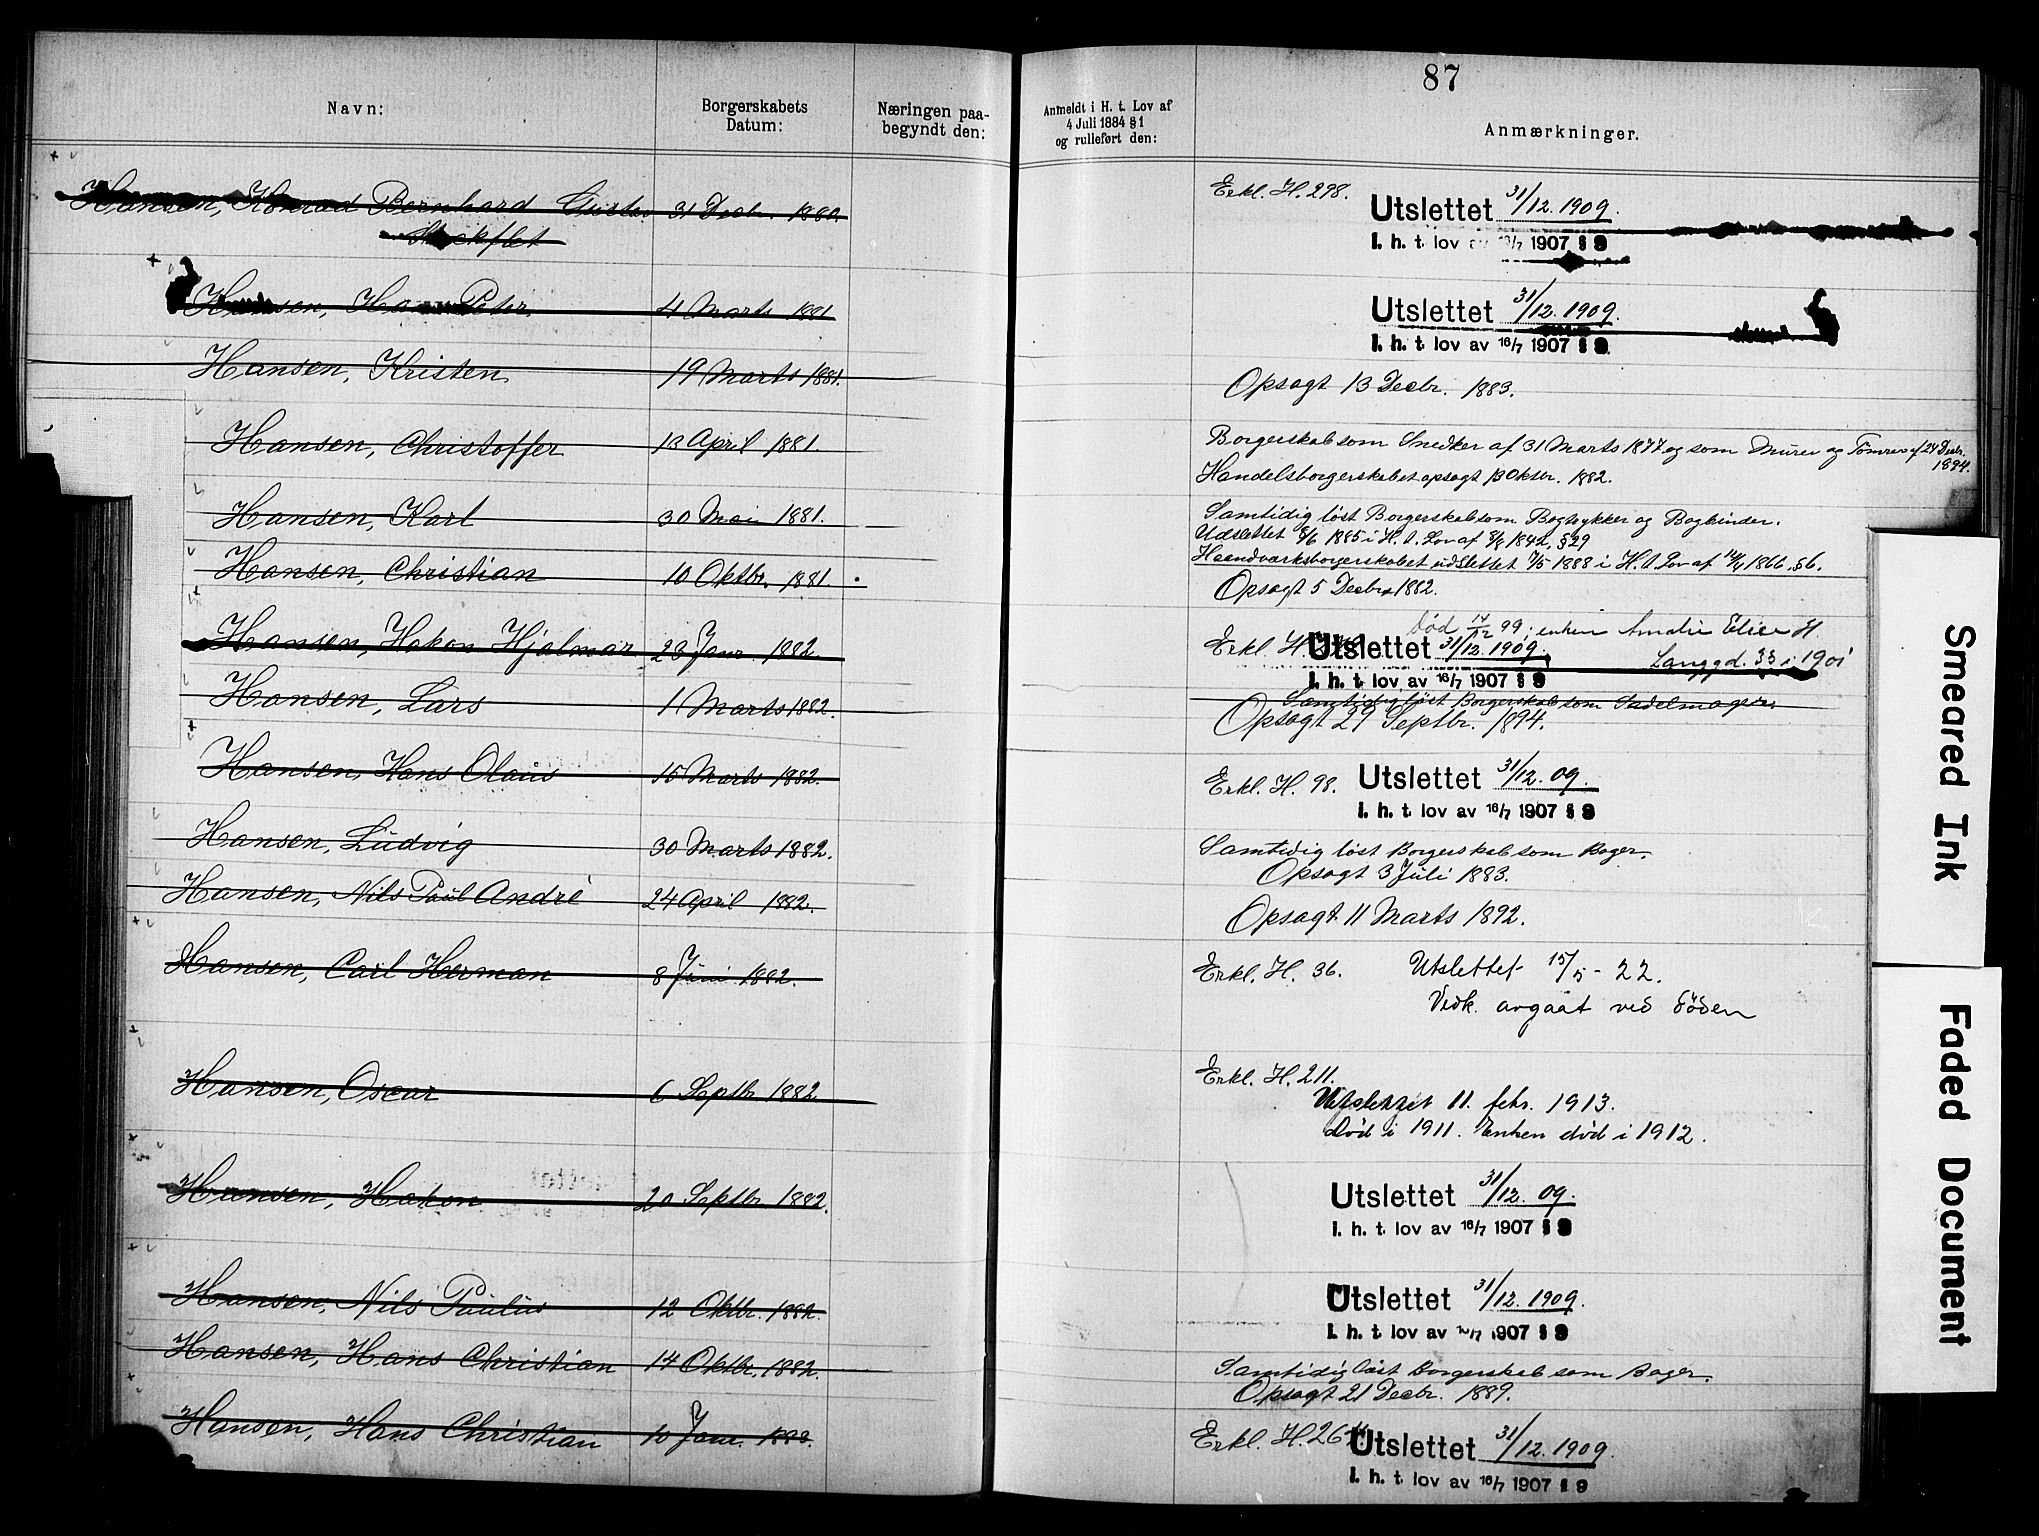 87
Navn:
Borgerskabets
Datum:
Næringen paa-
begyndt den:
Anmeldt i H. t. Lov af
4 Juli 1884 § 1
og rulleført den:
Anmærkninger.
Hansen, Konrad Bernhard Gustav 31 Decbr. 1880.
Erkl. H. 298.
Utslettet 31/12. 1909.
I. h. t. lov av 16/7 1907 § 9
Hansen, Hans Peter 4 Marts 1881
Utslettet 31/12. 1909.
I. h. t. lov av 16/7 1907 § 9
Hansen, Kristen 19 Marts 1881.
Opsagt 13 Decbr. 1883.
Hansen, Christoffer 13 April 1881.
Borgerskab som Snedker af 31 Marts 1877 og som Murer og Tömrer af 24 Decbr.
1894.
Handelsborgerskabet opsagt 13 Oktbr. 1882.
Hansen, Karl 30 Mai 1881.
Samtidig löst Borgerskab som Bogtrykker og Bogbinder.
Udslettet 8/6 1885 i H. t. Lov af 8/8 1842, § 29
Haandverksborgerskabet udslettet 7/5 1888 i H. t. Lov af 14/4 1866, § 6.
Hansen, Christian 10 Oktbr. 1881.
Opsagt 5 Decbr 1882.
Hansen, Hakon Hjalmar 28 Janr. 1882.
Död 14/12 99; enken Amalie Elise H.
Langgd. 33 i 1901
Erkl. H.
Utslettet 31/12. 1909.
I. h. t. lov av 16/7 1907 § 9
Hansen, Lars 1 Marts 1882.
Samtidig löst Borgerskab som Sadelmager.
Opsagt 29 Septbr. 1894.
Hansen, Hans Olaus 15 Marts 1882.
Erkl. H. 98.
Utslettet 31/12. 09.
I. h. t. lov av 16/7 1907 § 9
Hansen, Ludvig 30 Marts 1882.
Samtidig löst Borgerskab som Bager.
Opsagt 3 Juli 1883.
Hansen, Nils Paul André 24 April 1882.
Opsagt 11 Marts 1892.
Hansen, Carl Herman 8 Juni 1882.
Erkl. H. 36. Utslettet 15/5 - 22.
Vedk. avgaat ved döden
Hansen, Oscar 6 Septbr 1882
Erkl. H. 211.
Utslettet 11. febr. 1913.
död i 1911. Enken död i 1912.
Hansen, Hakon 20 Septbr 1882.
Utslettet 31/12. 09.
I. h. t. lov av 16/7 1907 § 9
Hansen, Nils Paulus 12 Oktbr. 1882.
Utslettet 31/12. 1909.
I. h. t. lov av 16/7 1907 § 9
Hansen, Hans Christian 14 Oktbr. 1882.
Samtidig löst Borgerskab som Bager.
Opsagt 21 Decbr. 1889.
Hansen, Hans Christian 10 Janr.
Erkl. H. 26
Utslettet 31/12. 1909.
I. h. t. lov av 16/7 1907 § 9
Smeared Ink
Faded Document